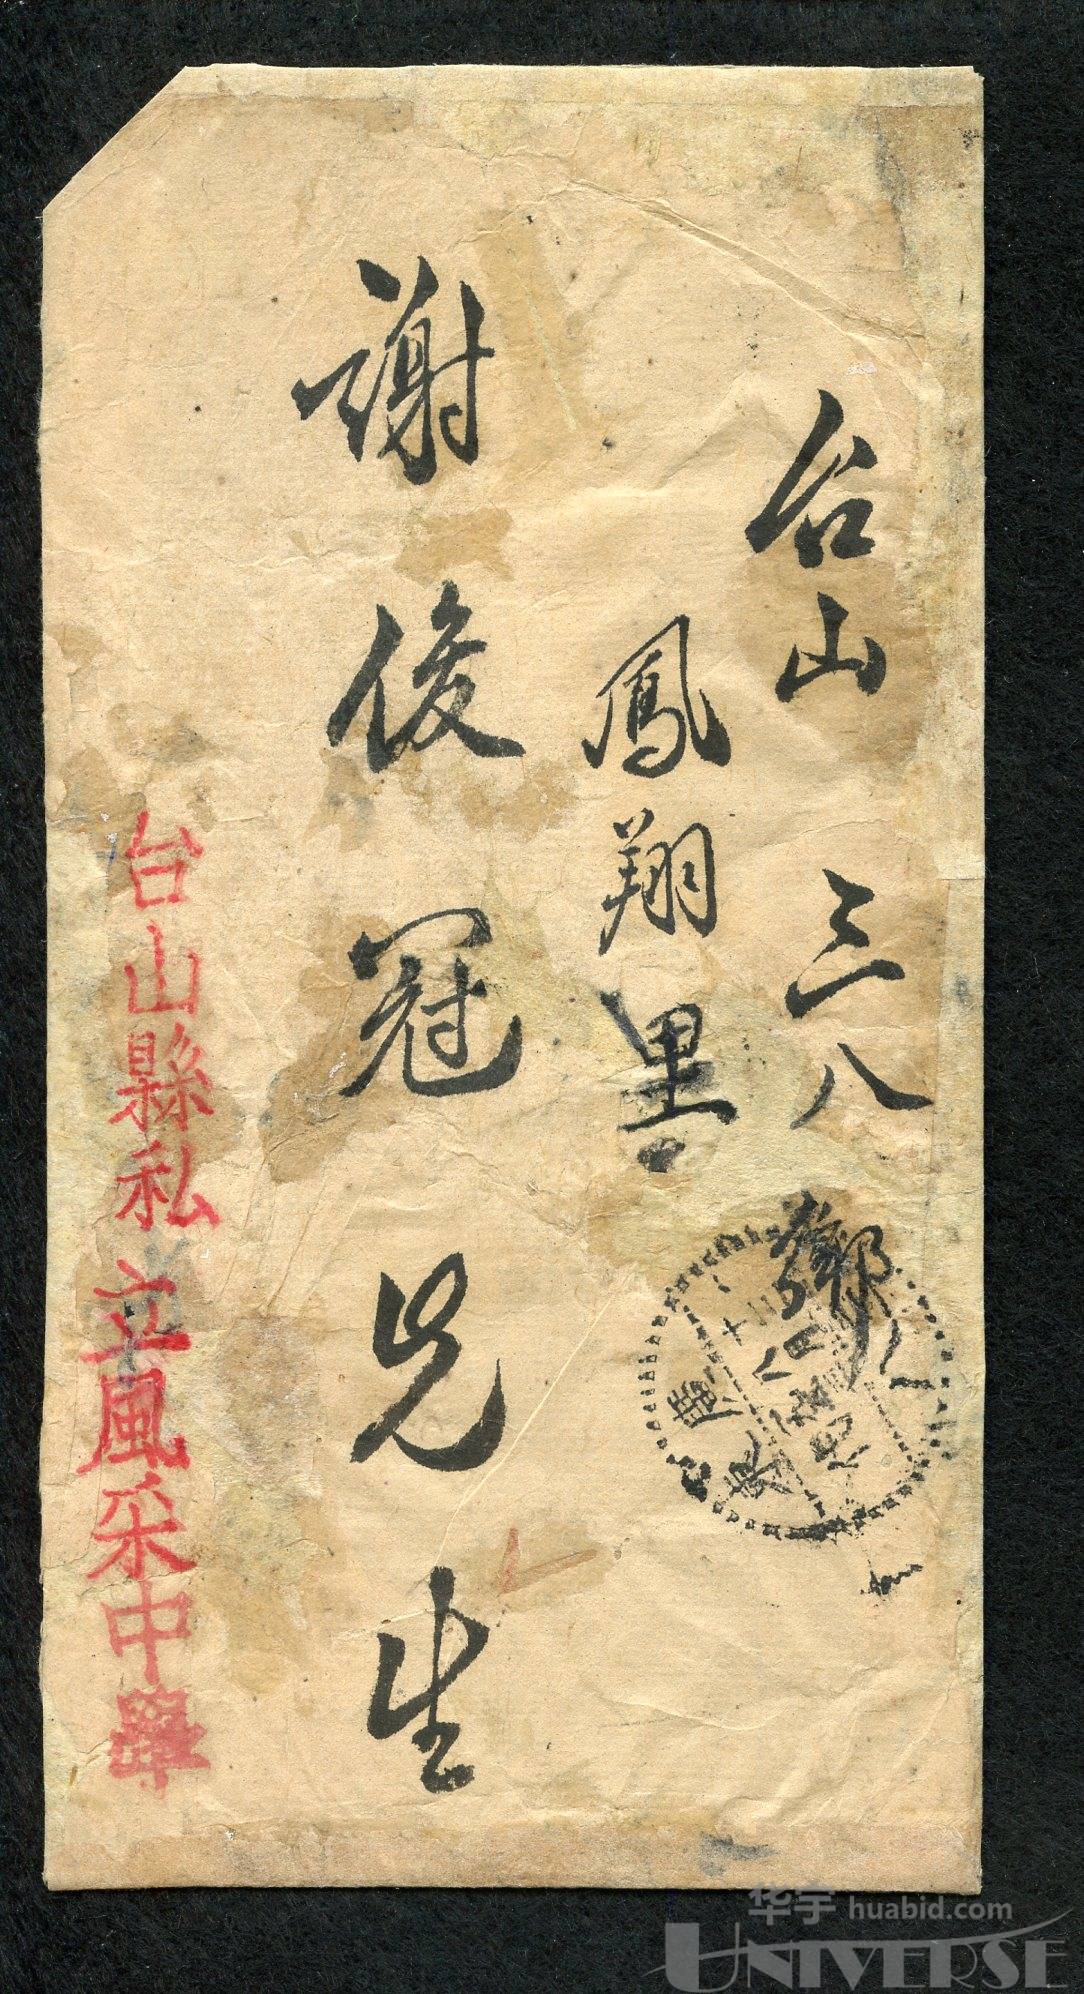 台山三八鄉
鳳翔里
謝俊冠兄生
台山縣私立風采中學
華宇 huabid.com
UNIVERSE